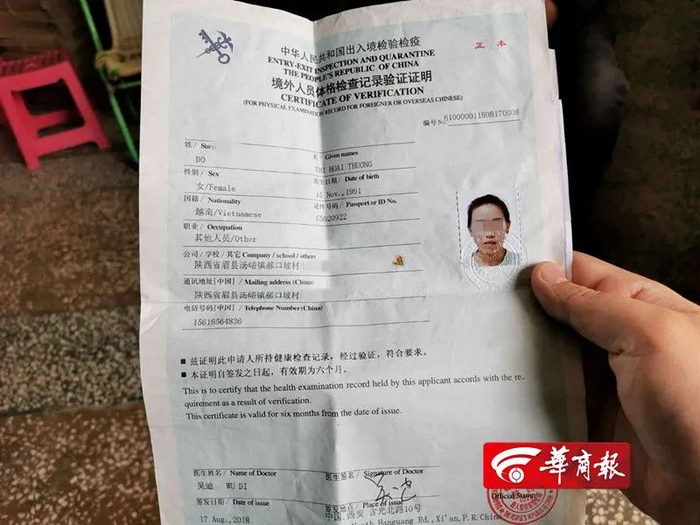 中华人民共和国出入境检验检疫
正本
ENTRY-EXIT INSPECTION AND QUARANTINE
THE PEOPLE'S REPUBLIC OF CHINA
境外人员体格检查记录验证证明
CERTIFICATE OF VERIFICATION
(FOR PHYSICAL EXAMINATION RECORD FOR FOREIGNER OR OVERSEAS CHINESE)
编号No. 610000011808170008
姓/ 名/Given names
DO THI HOAI THUONG
性别/Sex 出生日期/Date of birth
女/Female 15 Nov., 1991
国籍/Nationality 证件号码/Passport or ID No.
越南/Vietnamese C5620922
职业/Occupation
其他人员/Other
公司/学校/其它 Company / school / others
陕西省眉县汤峪镇郝口坡村
通讯地址[中国]/ Mailing address (China)
陕西省眉县汤峪镇郝口坡村
电话号码[中国]/ Telephone Number (China)
15618564836
■ 兹证明此申请人所持健康检查记录，经过验证，符合要求。
■ 本证明自签发之日起，有效期为六个月。
This is to certify that the health examination record held by this applicant accords with the re-
quirement as a result of verification.
This certificate is valid for six months from the date of issue.
医生姓名/ Name of Doctor 医生签名/ Signature of Doctor
吴迪 WU DI
签发日期/ Date of issue 签发地点/ Place of issue
中国.西安 含光北路10号
17 Aug., 2018 North Hanguang Rd., Xi'an, P.R.China
Official Stamp
華商報